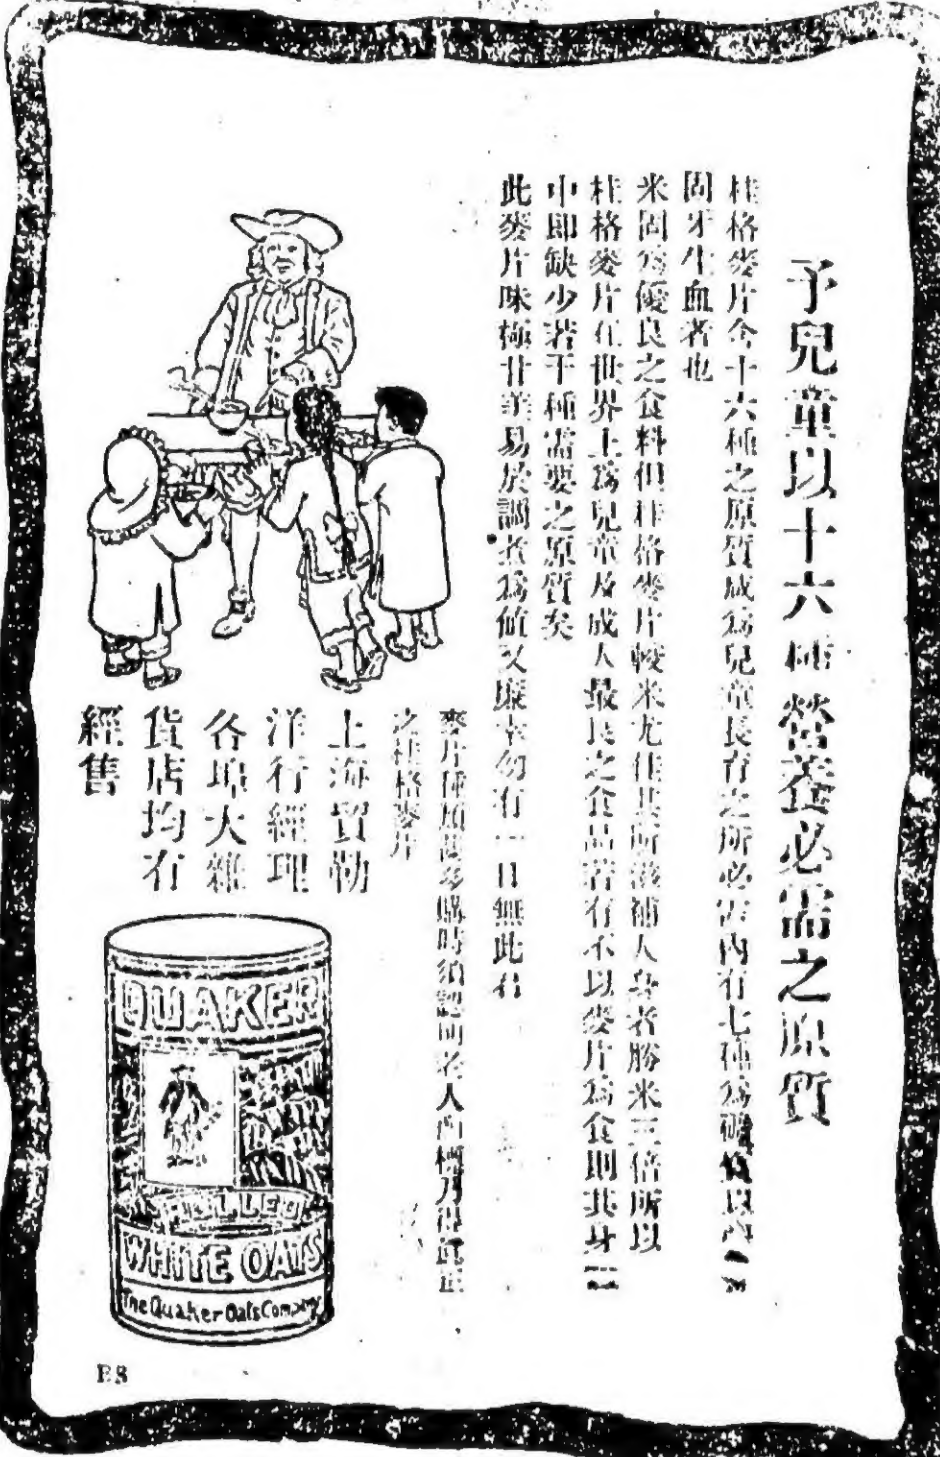 予兒童以十六種營養必需之原質
桂格麥片含十六種之原質成爲兒童長育之所必需內有七種爲
固牙生血者也
米固爲優良之食料但桂格麥片較米尤佳其所滋補人身者勝米三倍所以
桂格麥片在世界上爲兒童及成人最良之食品若有不以麥片爲食則其身體
中即缺少若干種需要之原質矣
此麥片味極甘美易於調煮爲值又廉幸勿有一日無此君
麥片種類甚多購時須認明老人商標乃得真正
之桂格麥片
上海貿勒
洋行經理
各埠大雜
貨店均有
經售
QUAKER
ROLLED
WHITE OATS
The Quaker Oats Company
E8